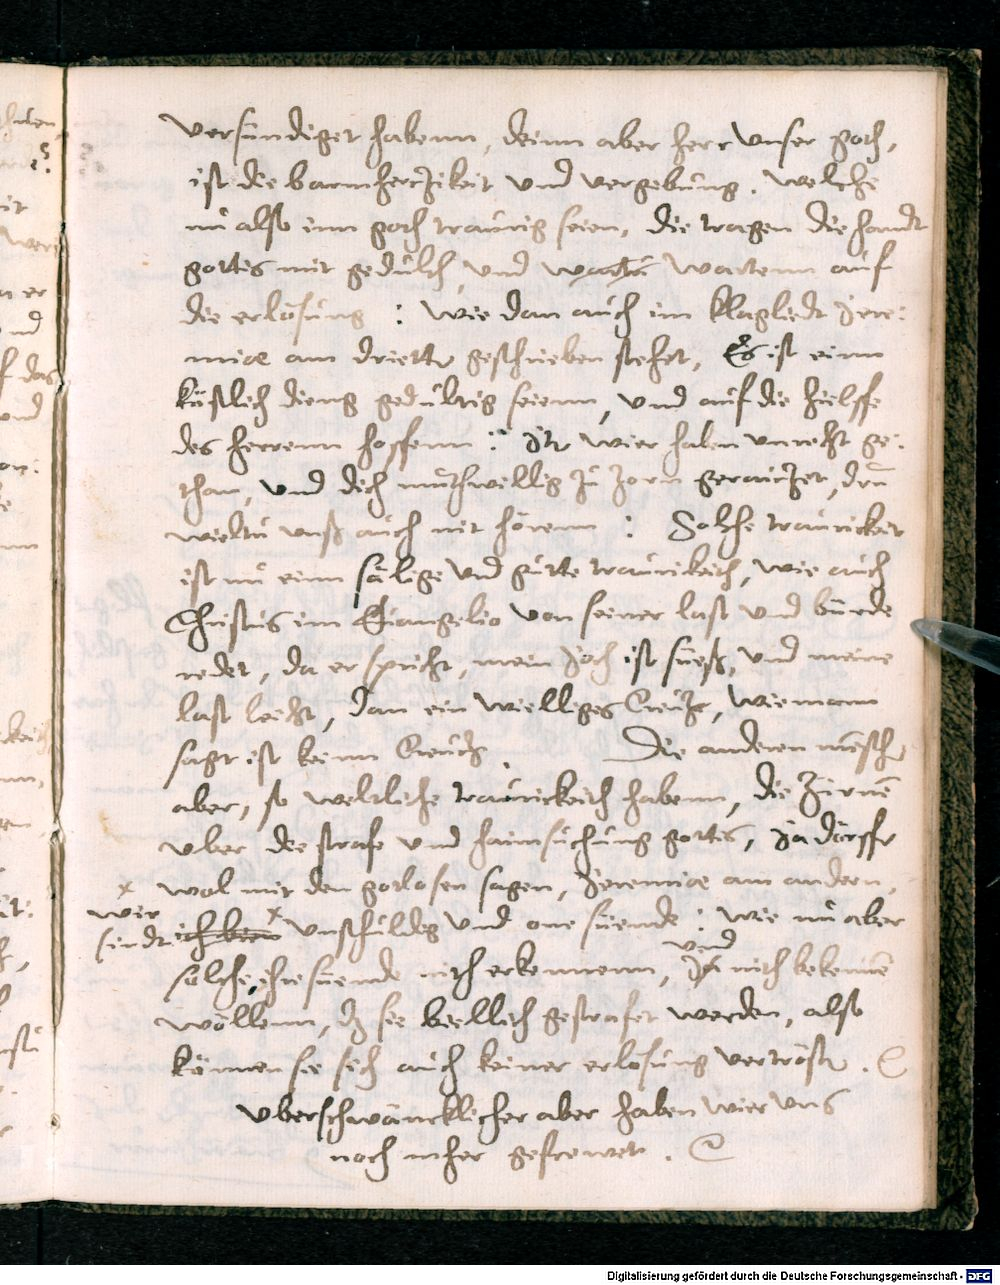 versündiget habenn, deinn aber herr unser goth,
ist die barmherczikeit und vergebung. Welche
nu also inn goth traurig seien, die tragen die handt
gottes mit gedulth, und wartenn auf
die erlosung : Wie dan auch im klagliedt Jere:
miae am drietten geschrieben stehet, Es ist einn
köstlich dieng gedultig seienn, und auf die hielffe
des herrenn hoffenn : Jtz wier haben unrecht ge:
than, und dich muthwellig zu zorn gereiczet, drū
wieltu unß auch nit hörenn : Solche traurickeit
ist nu einn sälige und gutte traurikeith, wie auch
Christus im Euangelio von seiner last und bürde
redet, da er spricht, mein Joch ist sueß, und meine
last leicht, dan ein wielliges Creutz, wie mann
sagt ist keinn Creutz. Die anderen mēschē
aber, so weltliche traurickeith habenn, die zürnē
uber die strafe und haimsuchung gottes, Ja dörffen
wol mit den gotlosen sagen, Jeremiae am andern,
x wir
seindt ich bien x unschuldig und one suende : Wie nu aber
solche ihre suende nith erkennenn, und nith bekennē
wöllenn, dz sie biellich gestrafet werden, also
können sie sich auch keiner erlosung vertrösten.
uberschwäncklicher aber haben wier uns
noch meher gefrewet.
Digitalisierung gefördert durch die Deutsche Forschungsgemeinschaft - DFG